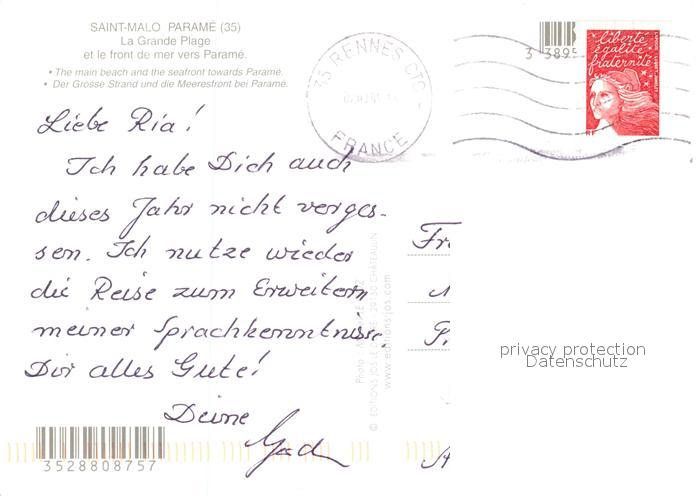 SAINT-MALO PARAMÉ (35)
La Grande Plage
et le front de mer vers Paramé.
• The main beach and the seafront towards Paramé.
• Der Grosse Strand und die Meeresfront bei Paramé.
35 RENNES CTC
FRANCE
3 3895
liberté
égalité
fraternité
RF
Liebe Ria!
Ich habe Dich auch
dieses Jahr nicht verges-
sen. Ich nutze wieder
die Reise zum Erweitern
meiner Sprachkenntnisse
Dir alles Gute!
Deine
Fr
www.editionsjos.com
privacy protection
Datenschutz
3528808757